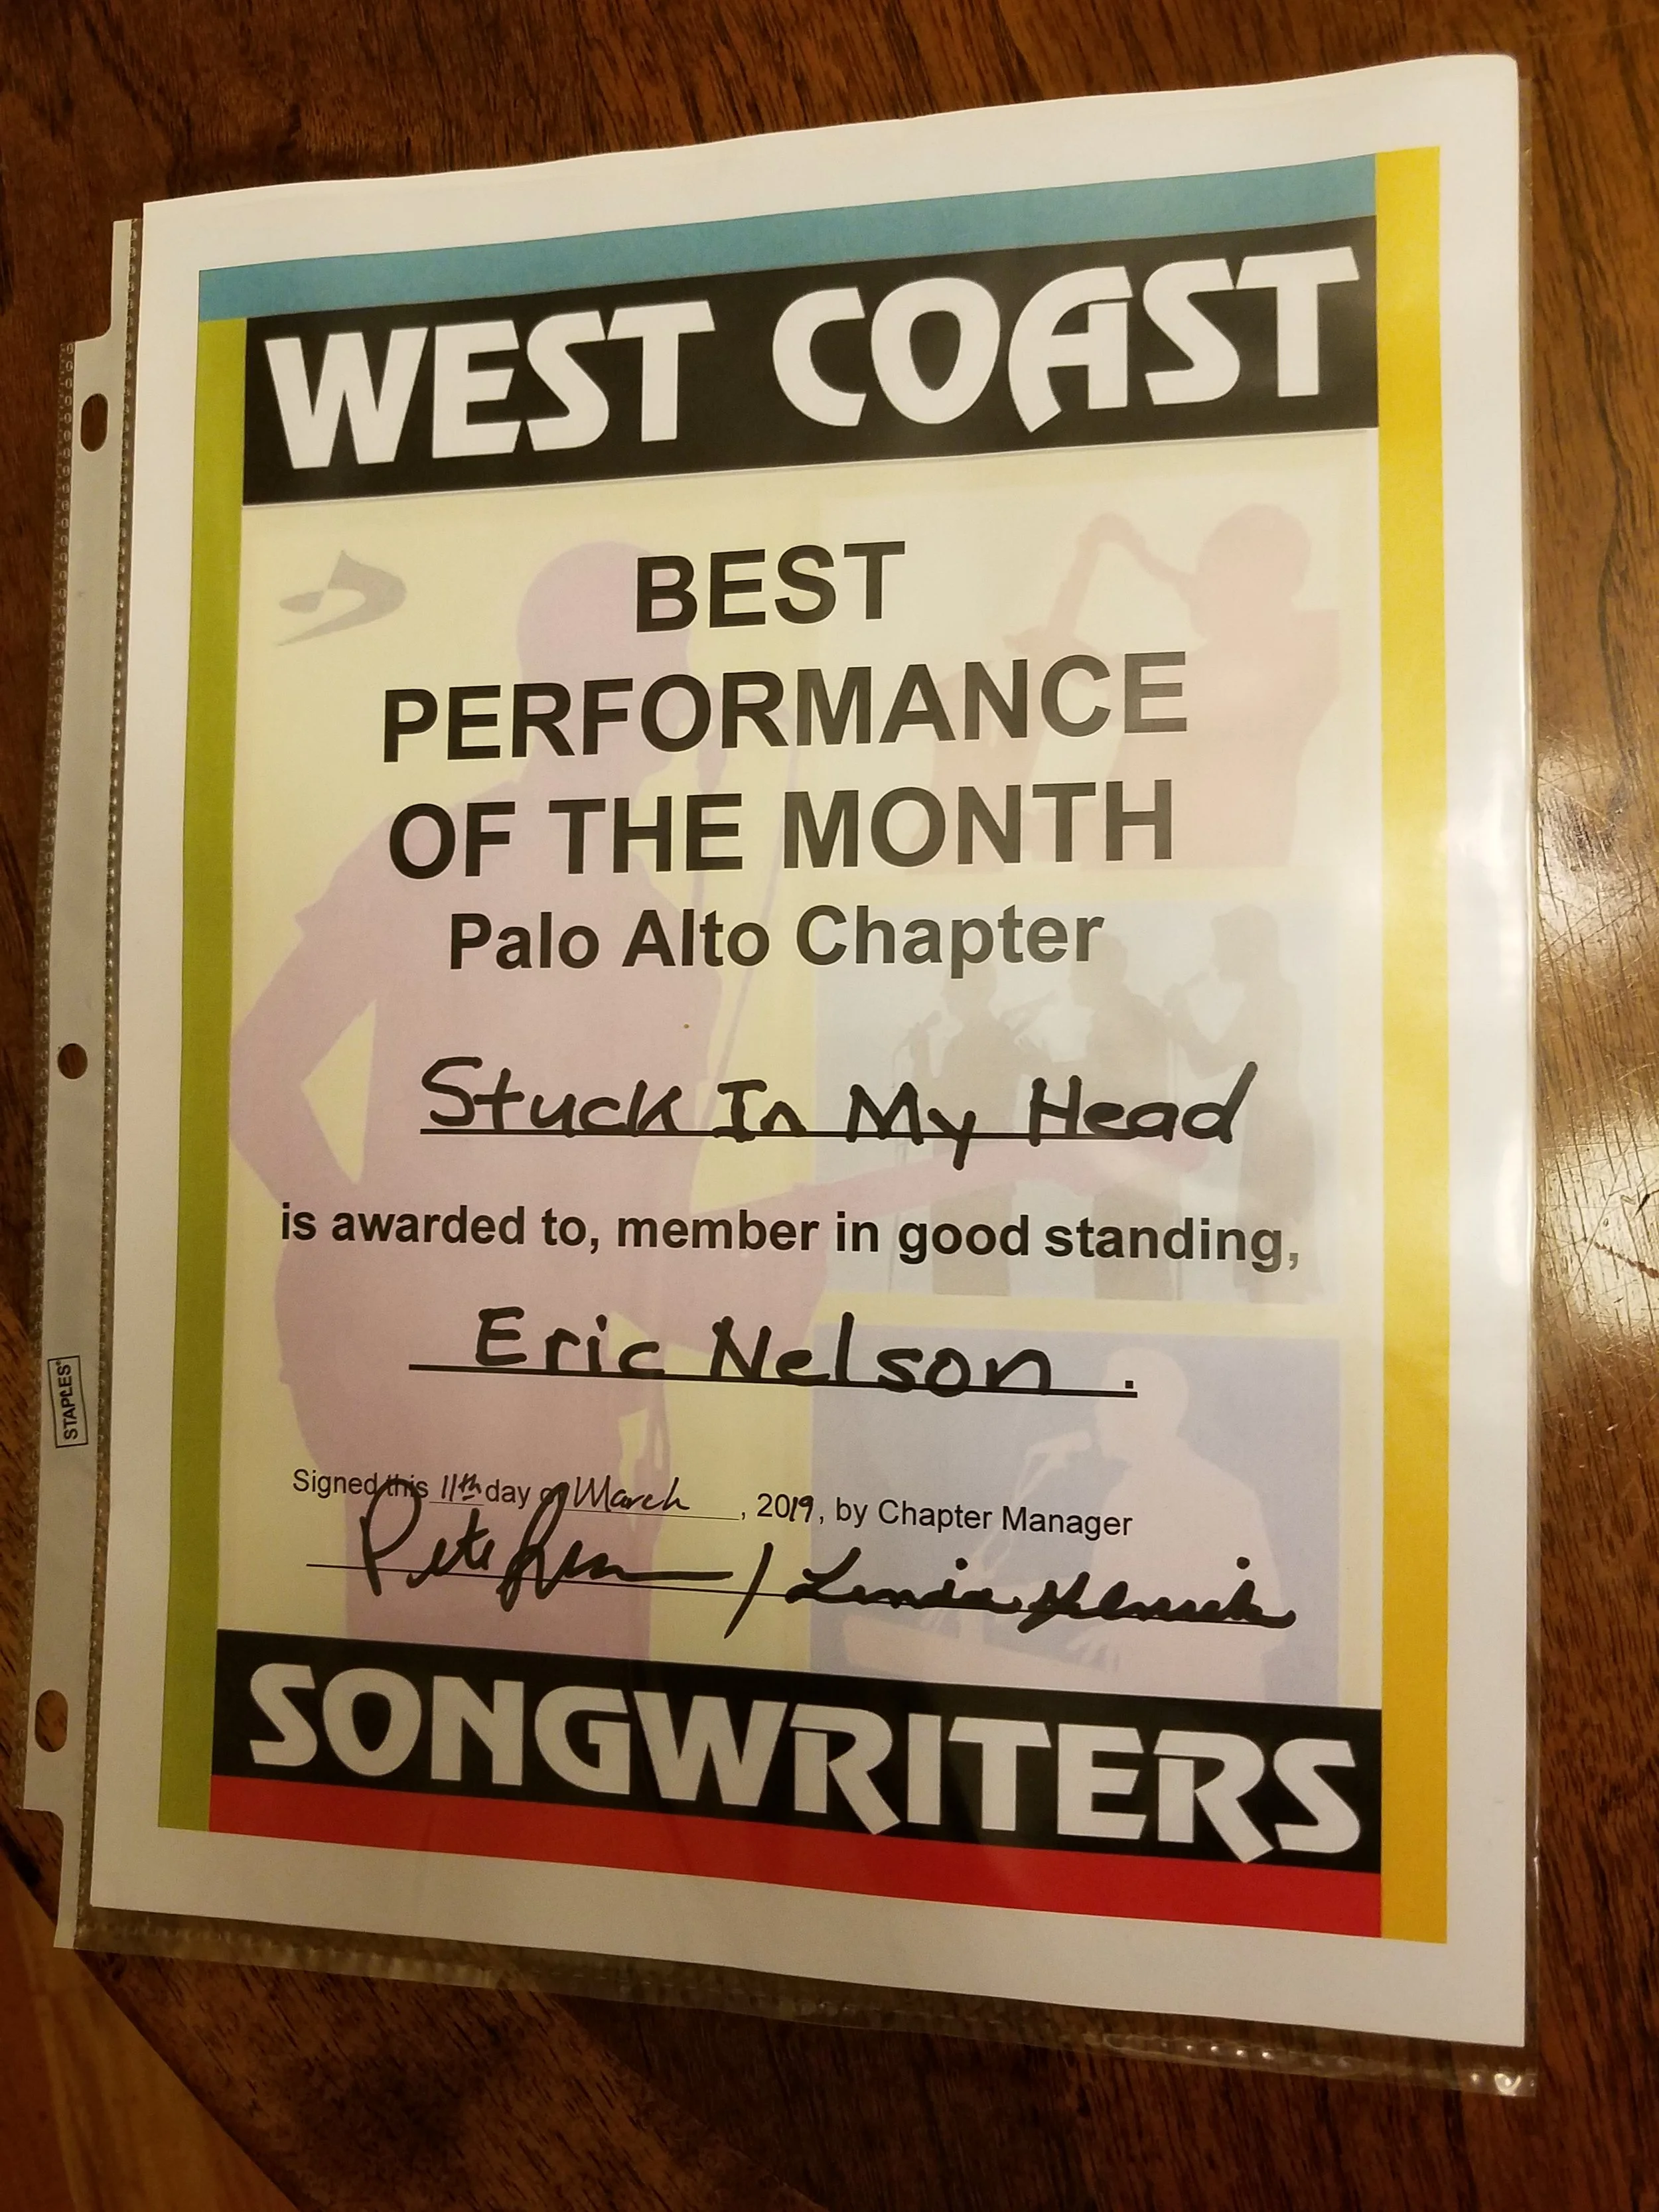 WEST COAST
BEST
PERFORMANCE
OF THE MONTH
Palo Alto Chapter
Stuck In My Head
is awarded to, member in good standing,
Eric Nelson.
STAPLES
Signed this 11th day of March, 2019, by Chapter Manager
Pete
SONGWRITERS